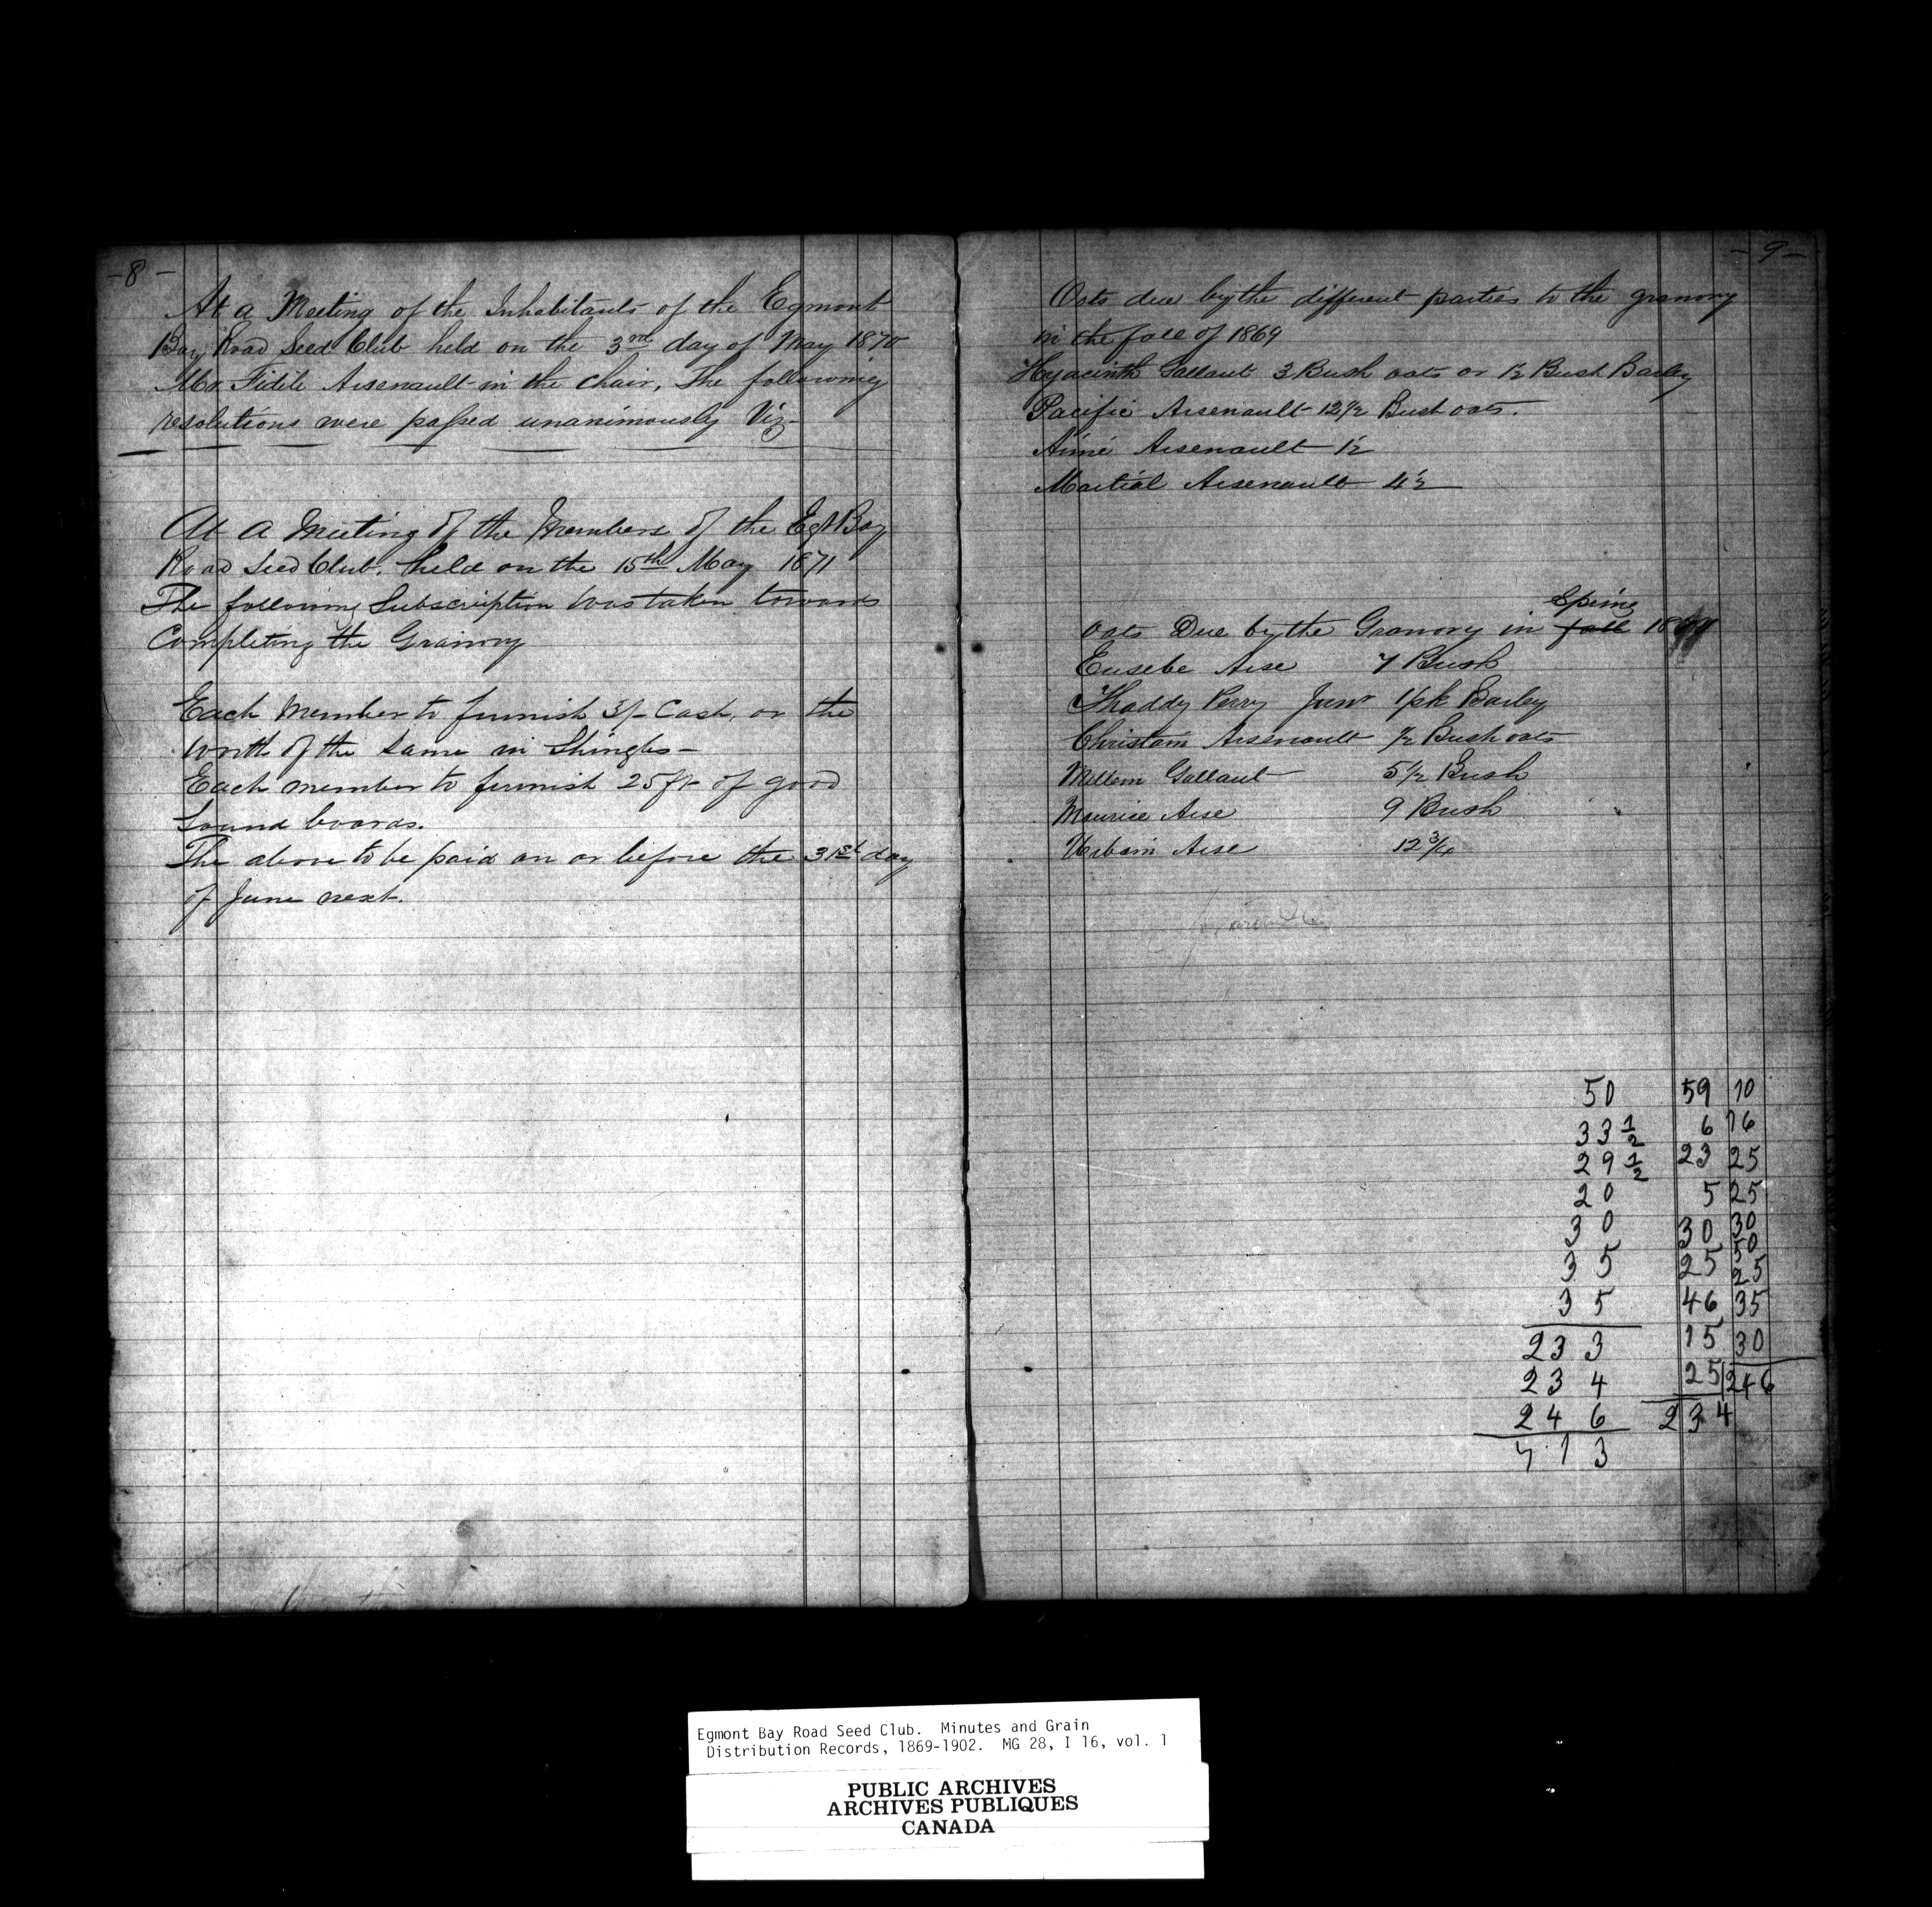 -8-
At a Meeting of the Inhabitants of the Egmont
Bay Road Seed Club held on the 3rd day of May 1870
Mr. Fidile Arsenault in the chair, The following
resolutions were passed unanimously Viz-
At a Meeting of the Members of the Egt Bay
Road Seed Club. held on the 15th May 1871
The following Subscription was taken towards
Completing the Granory
Each Member to furnish 3/- Cash, or the
worth of the same in Shingles-
Each member to furnish 25 ft of good
Sound boards.
The above to be paid on or before the 31st day
of June next.
-9-
Oats due by the different parties to the granory
in the fall of 1869
Hyacinth Gallant 3 Bush oats or 1½ Bush Barley
Pacific Arsenault 12½ Bush oats.
Aimé Arsenault 1½
Martial Arsenault 4½
Spring
Oats Due by the Granory in fall
Eusebe Arse 7 Bush
Thaddy Perry Junr 1 pk Barley
Christain Arsenault ½ Bush oats
Mellem Gallant 5½ Bush
Maurice Arse 9 Bush
Urbain Arse 12¾
50 59 10
33 1/2 6 16
29 1/2 23 25
20 5 25
30 30 30
50
35 25 25
35 46 35
233 15 30
234 25 246
246 234
713
Egmont Bay Road Seed Club. Minutes and Grain
Distribution Records, 1869-1902. MG 28, I 16, vol. 1
PUBLIC ARCHIVES
ARCHIVES PUBLIQUES
CANADA